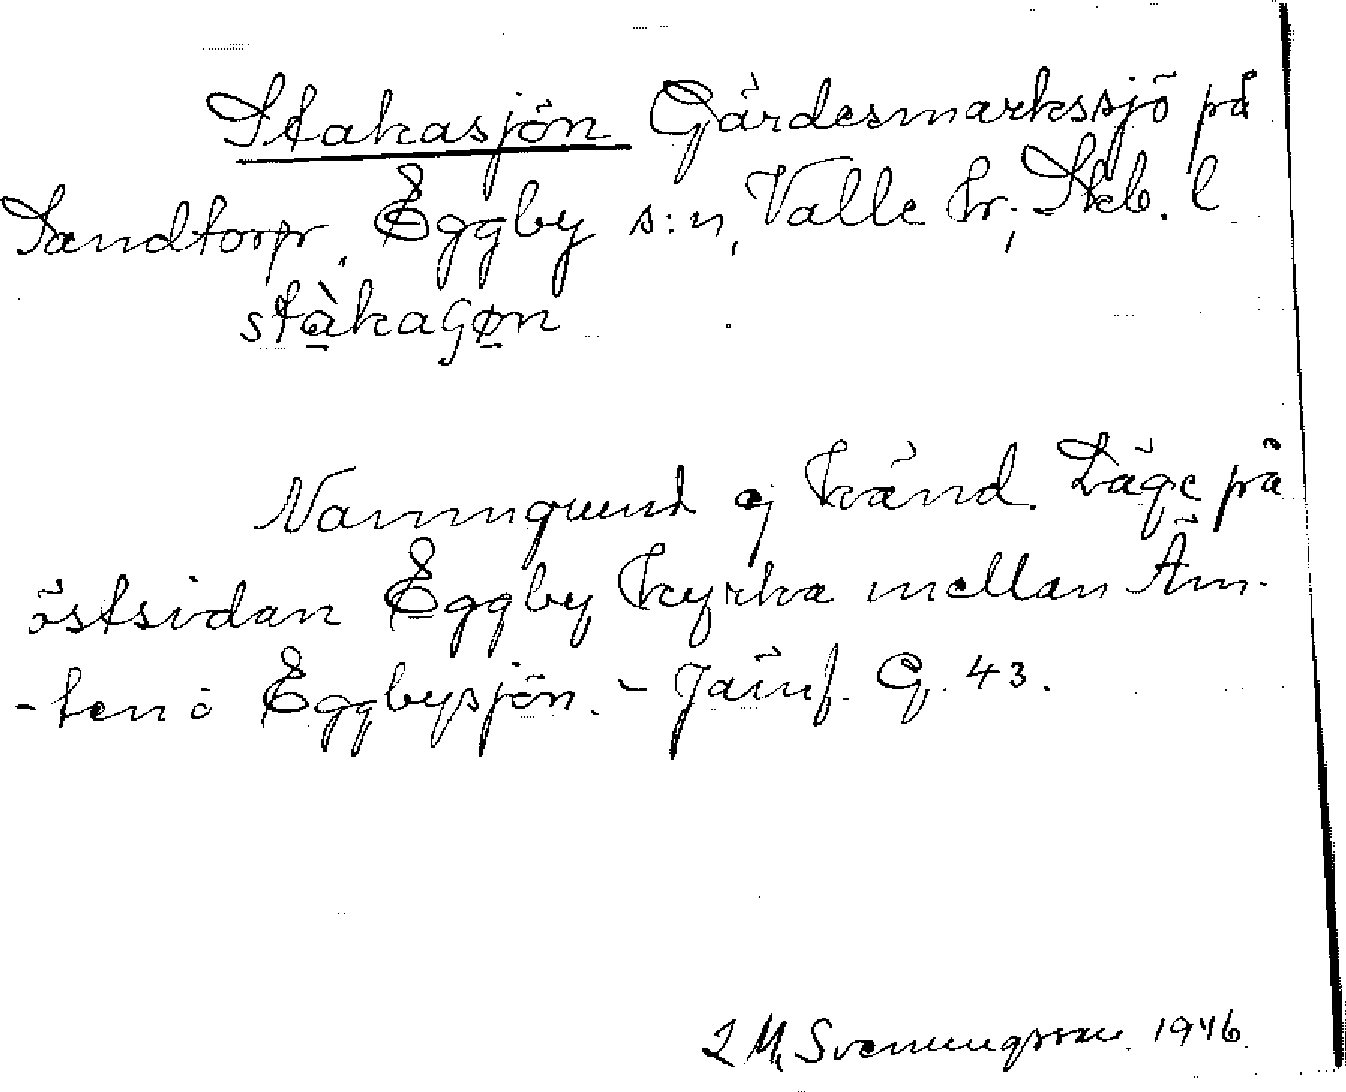 Stakasjön Gärdesmarkssjö på
Sandtorp, Eggby s:n, Valle hr, Skb. l
stàkaʃøn
Namngrund ej känd. Läge på
östsidan Eggby kyrka mellan Äm-
-ten o Eggbysjön. - Jämf. G. 43.
L M Svenungsson 1946.